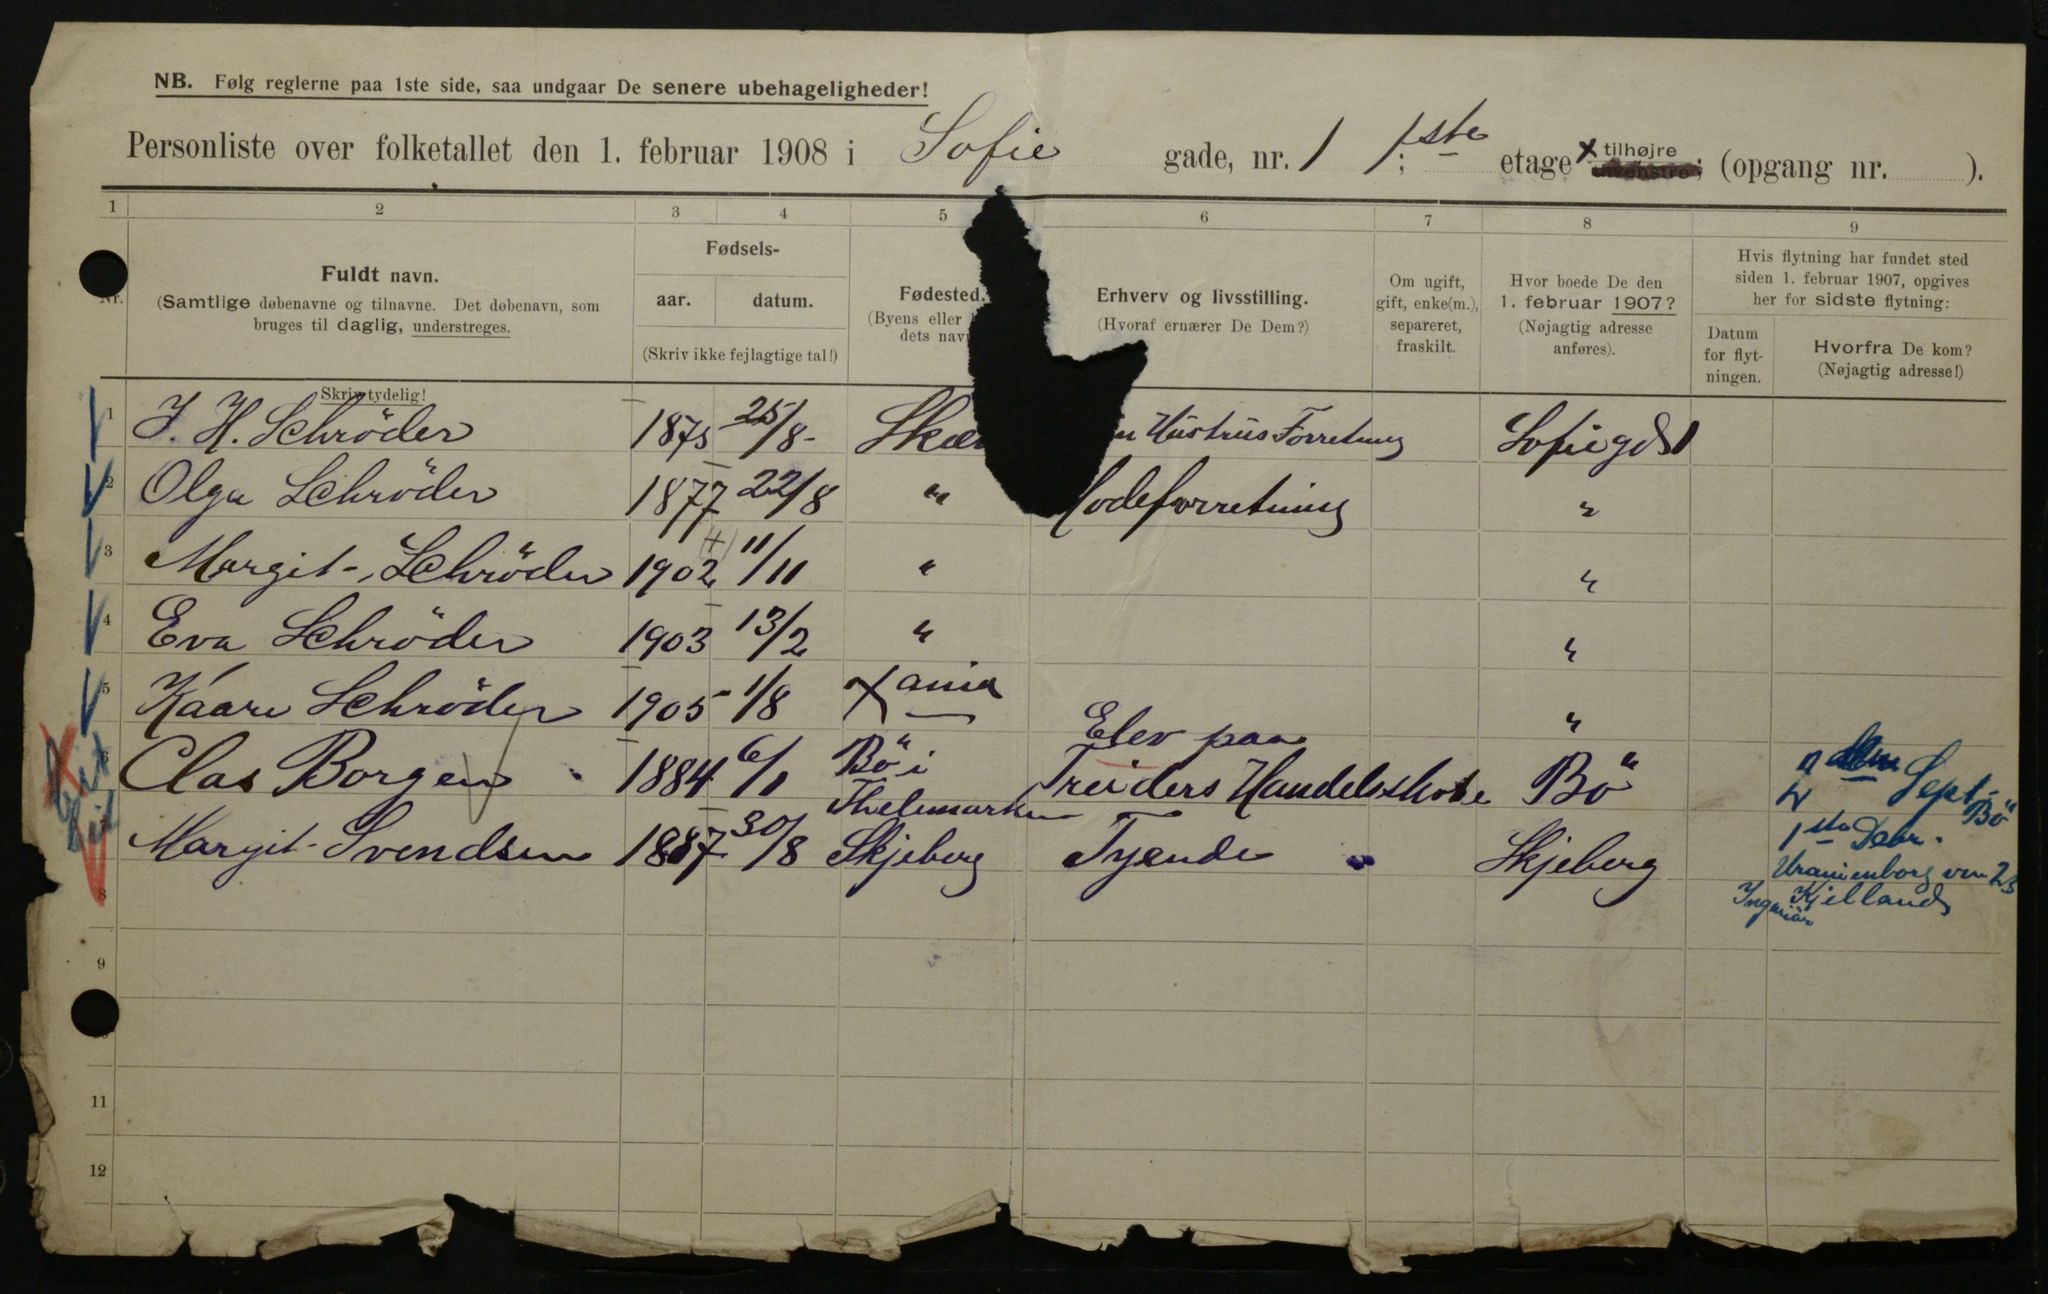 NB. Følg reglerne paa 1ste side, saa undgaar De senere ubehageligheder!
Personliste over folketallet den 1. februar 1908 i Sofie gade, nr. 1 ; 1ste etage x tilhøjre ; (opgang nr. ).
1 2 3 4 5 6 7 8 9
Nr.
Fuldt navn.
(Samtlige døbenavne og tilnavne. Det døbenavn, som
bruges til daglig, understreges.
Skriv tydelig!
Fødsels-
aar. datum.
(Skriv ikke fejlagtige tal!)
Fødested.
(Byens eller
dets nav
Erhverv og livsstilling.
(Hvoraf ernærer De Dem?)
Om ugift,
gift, enke(m.),
separeret,
fraskilt.
Hvor boede De den
1. februar 1907?
(Nøjagtig adresse
anføres).
Hvis flytning har fundet sted
siden 1. februar 1907, opgives
her for sidste flytning:
Datum
for flyt-
ningen.
Hvorfra De kom?
(Nøjagtig adresse!)
1 J. H. Schröder 1875 25/8 Hustrus Forretning Sofiegd 1
2 Olga Schröder 1877 22/8 " odeforretning "
3 Margit Schröder 1902 11/11 " "
4 Eva Schröder 1903 13/2 " "
5 Kaare Schröder 1905 1/8 Xania "
6 Clas Borgen 1884 6/1 Bö i Thelemarken Elev paa Treiders Handelsskole Bö Sept. Bö
7 Margit Svendsen 1887 30/8 Skjeberg Tyende Skjeberg 1ste Debr.
Uranienborg vn 23
Ingeniör Kjelland
8
9
11
12